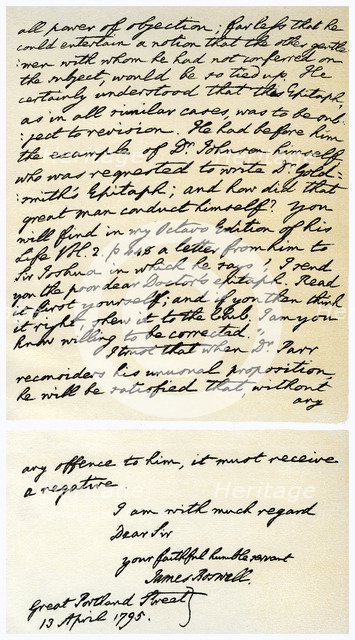 all power of objection; far less that he
could entertain a notion that the other gentle
:men with whom he had not conferred on
the subject, would be so tied up. He
certainly understood that the Epitaph,
as in all similar cases, was to be sub
:ject to revision. He had before him
the example of Dr. Johnson himself,
who was requested to write Dr. Gold=
:smith's Epitaph; and how did that
great man conduct himself? you
will find in my Octavo Edition of his
Life Vol. 2. p 448 a letter from him to
Sir Joshua in which he says, "I send
you the poor dear Doctor's epitaph. Read
it first yourself; and if you then think
it right, shew it to the Club. I am you
know willing to be corrected."
I trust that when Dr. Parr
reconsiders his unusual proposition,
he will be satisfied that, without
any
any offence to him, it must receive
a negative.
I am with much regard
Dear Sir
your faithful humble servant
James Boswell.
Great Portland Street
13 April 1795.
Heritage
Heritage